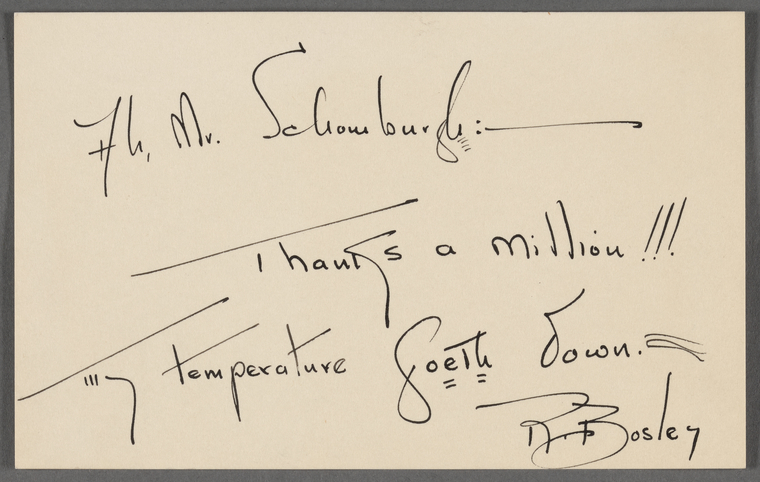 Ah, Mr. Schomburgh:—
Thanks a million!!!
my temperature goeth down.
R. Bosley